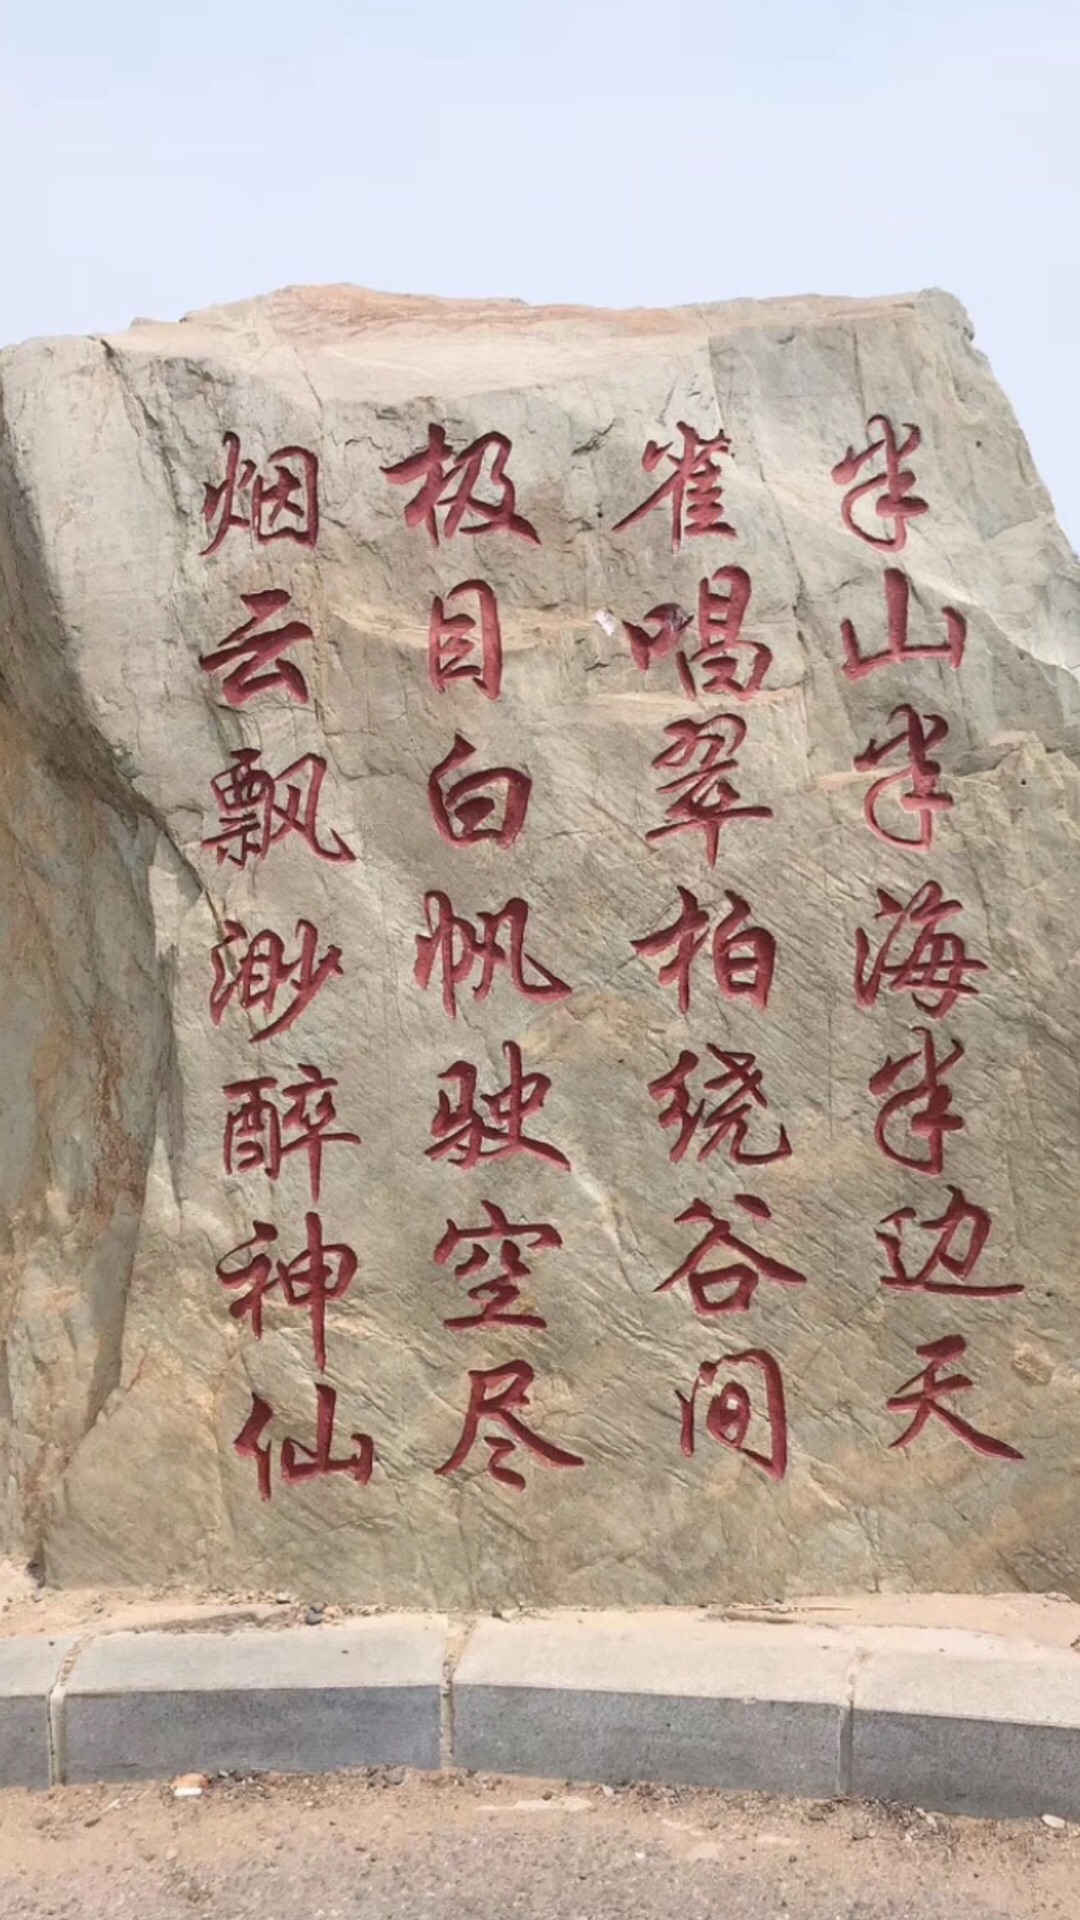 半山半海半边天
雀唱翠柏绕谷间
极目白帆驶空尽
烟云飘渺醉神仙